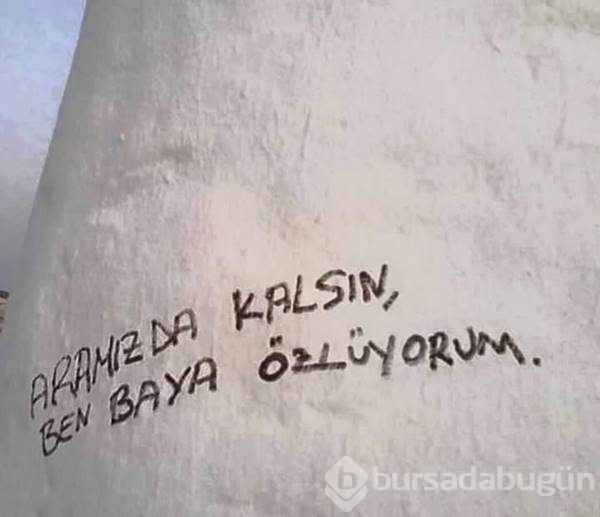 ARAMIZDA KALSIN,
BEN BAYA ÖZLÜYORUM.
b bursadabugün